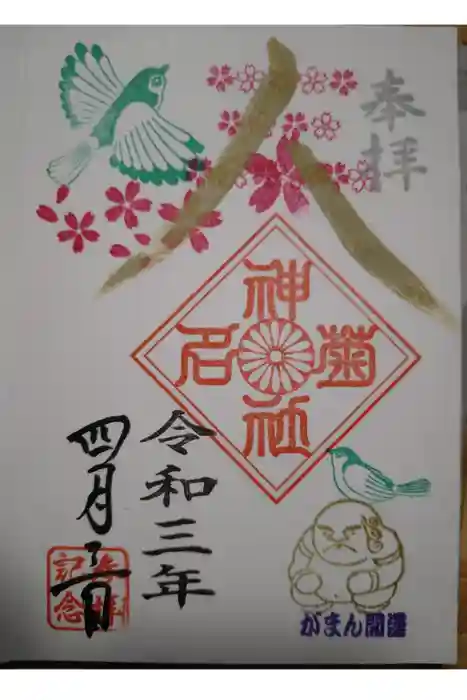 奉拝
菊名神社
令和三年
四月 日
参拝
記念
がまん開運